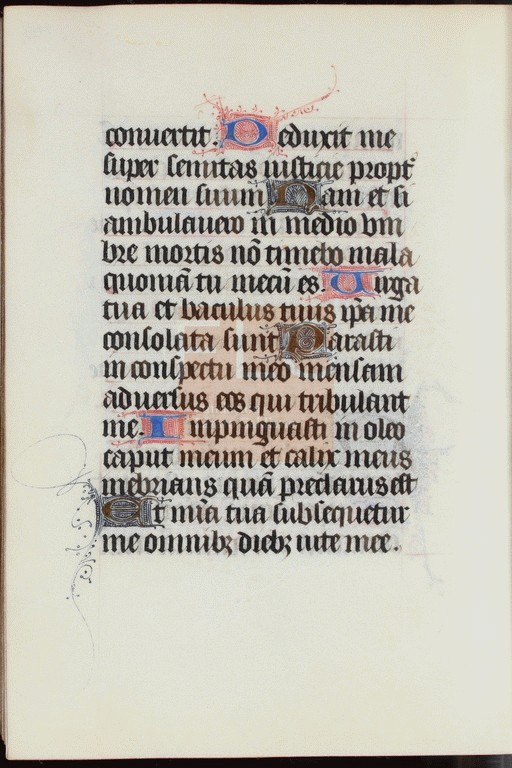 conuertit. Deduxit me
super semitas iusticie propt᷑
nomen suum Nam et si
ambulauero in medio vm
bre mortis nō timebo mala
quoniā tu mecū es. Uirga
tua et baculus tuus ip̄a me
consolata sunt Parasti
in conspectu meo mensam
aduersus eos qui tribulant
me. Inpinguasti in oleo
caput meum et calix meus
inebrians quā preclarus est
Et mīa tua subsequetur
me omnibꝫ diebꝫ uite mee.